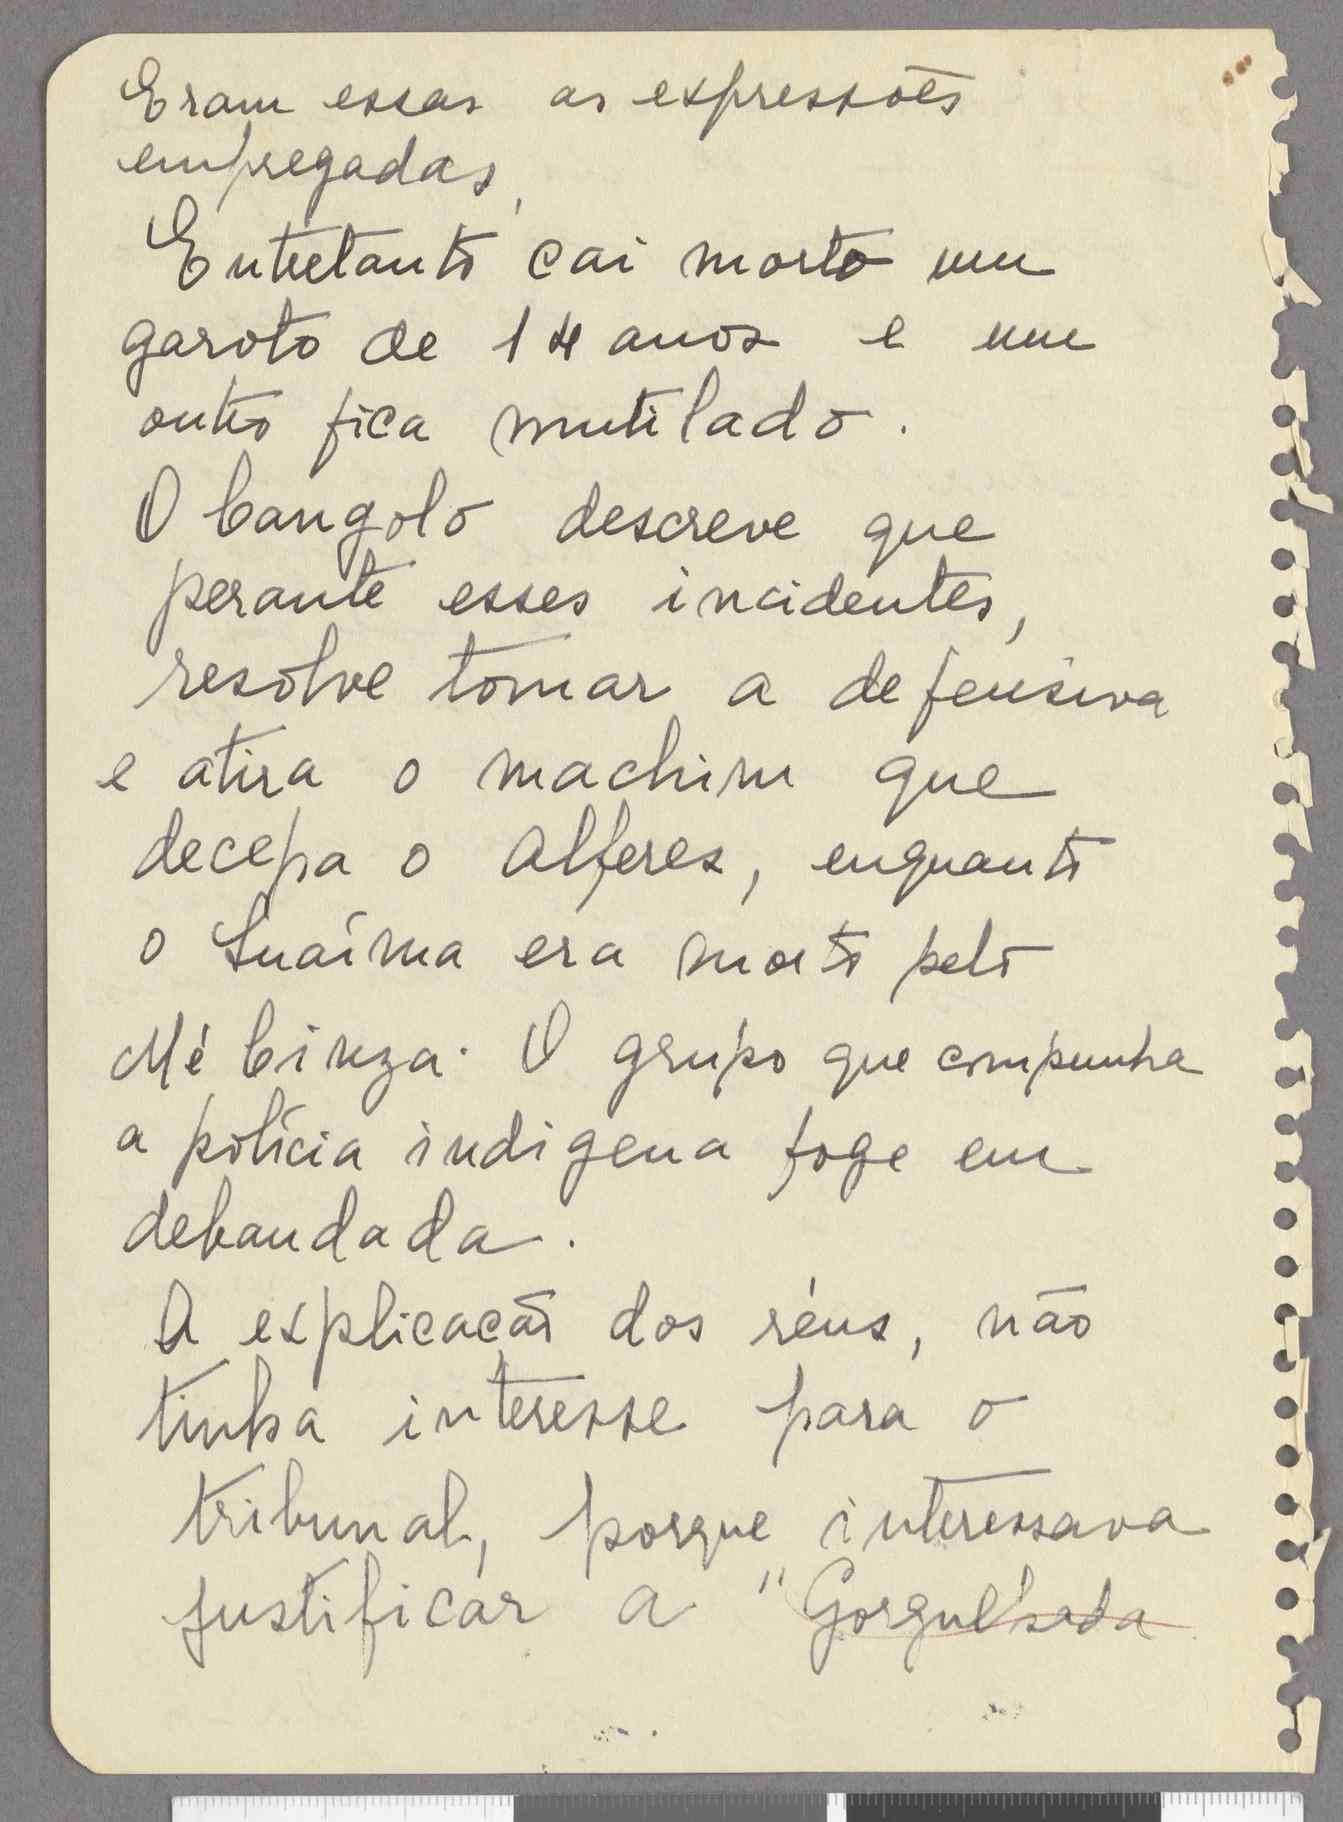 Eram essas as expressões
empregadas,
Entretanto cai morto um
garoto de 14 anos e um
outro fica mutilado.
O Cangolo descreve que
perante esses incidentes,
resolve tomar a defensiva
e atira o machim que
decepa o Alferes, enquanto
o Suaíma era morto pelo
Mé Cinza. O grupo que compunha
a polícia indigena foge em
debandada.
A explicacão dos réus, não
tinha interesse para o
tribunal, porque interessava
justificar a "